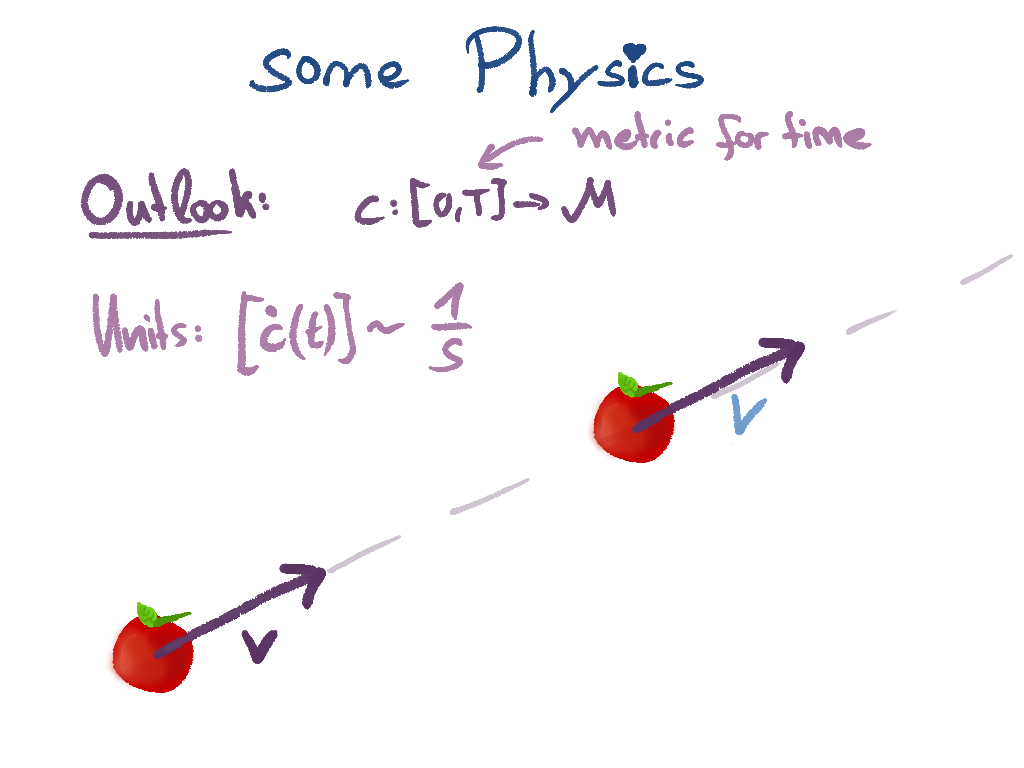 some Physics
metric for time
Outlook: c: [0,T] → M
Units: [ċ(t)] ~ 1/s
v
v